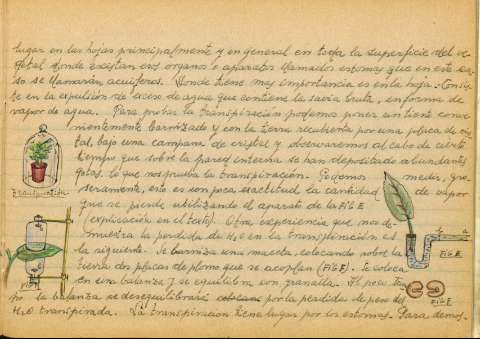 lugar en las hojas principalmente y en general en toda la superficie del ve-
getal donde existan esos organos o aparatos llamados estomas que en este ca-
so se llamaran acuiferos. Donde tiene mas importancia es en la hoja. Consis-
te en la expulsión de exceso de agua que contiene la savia bruta, en forma de
vapor de agua. Para probar la transpiración podemos poner un tiesto conve-
nientemente barnizado y con la tierra recubierta por una placa de cris-
tal, bajo una campana de cristal y observaremos al cabo de cierto
tiempo que sobre la pared interna se han depositado abundantes
gotas, lo que nos prueba la transpiración. Podemos medir, gro-
seramente, esto es con poca exactitud la cantidad de vapor
que se pierde utilizando el aparato de la FIG E
(explicación en el texto). Otra experiencia que nos de-
muestra la perdida de H2O en la transpiración es
la siguiente. Se barniza una maceta, colocando sobre la
tierra dos placas de plomo que se acoplan (FIG E). Se coloca
en una balanza y se equilibra con granalla. Al poco tiem-
po la balanza se desequilibrará por la perdida de peso del
H2O transpirada. La transpiración tiene lugar por los estomas. Para demos-
Transpiración
b a
FIG E
FIG E